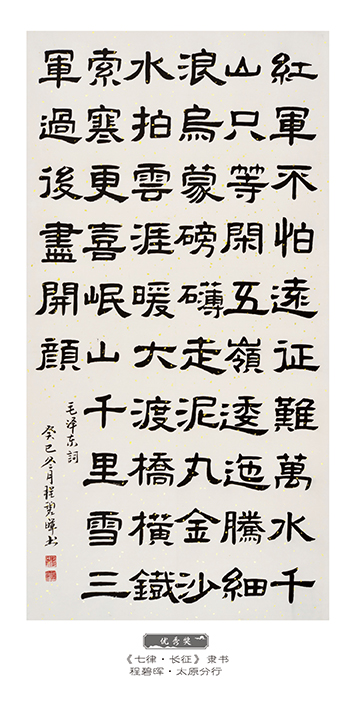 紅軍不怕遠征難萬水千
山只等閑五嶺逶迤騰細
浪烏蒙磅礴走泥丸金沙
水拍雲涯暖大渡橋橫鐵
索寒更喜岷山千里雪三
軍過後盡開顏
毛泽东詞
癸巳冬月程碧暉书
优秀奖
《七律·长征》 隶书
程碧晖·太原分行